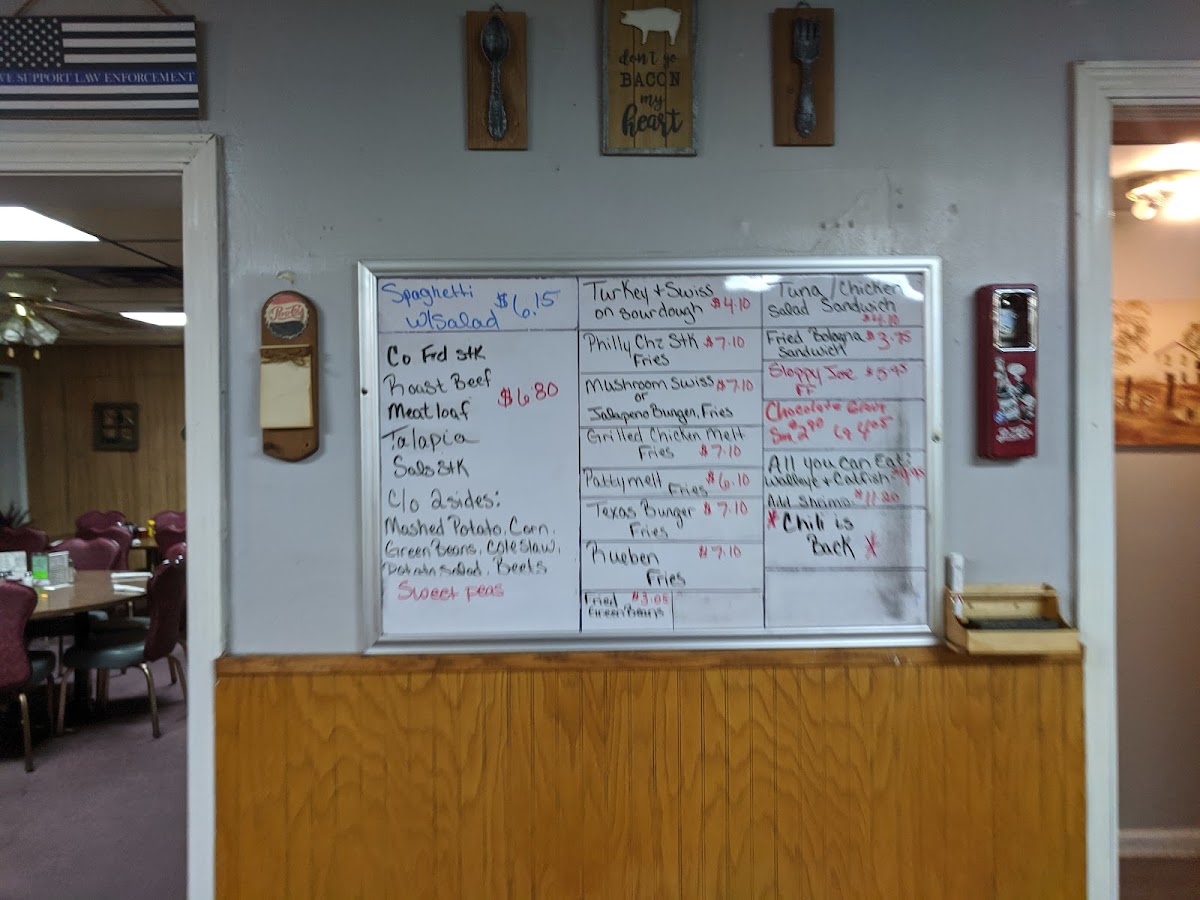 WE SUPPORT LAW ENFORCEMENT
don't go
BACON
my
heart
Spaghetti $6.15
w/Salad
Co Frd Stk
Roast Beef $6.80
Meatloaf
Talapia
Sals Stk
C/o 2 sides:
Mashed Potato, Corn,
Green Beans, Coleslaw,
Potato Salad, Beets
Sweet peas
Turkey + Swiss
on Sourdough $4.10
Philly Chz Stk $7.10
Fries
Mushroom Swiss $7.10
or
Jalapeno Burger, Fries
Grilled Chicken Melt
Fries $7.10
Pattymelt Fries $6.10
Texas Burger $7.10
Fries
Rueben $7.10
Fries
Fried
Green Beans
Tuna / Chicken
Salad Sandwich
Fried Bologna
Sandwich
Sloppy Joe
FF
Chocolate
All you can Eat:
Walleye + Catfish
Add Shrimp
* Chili is
Back *